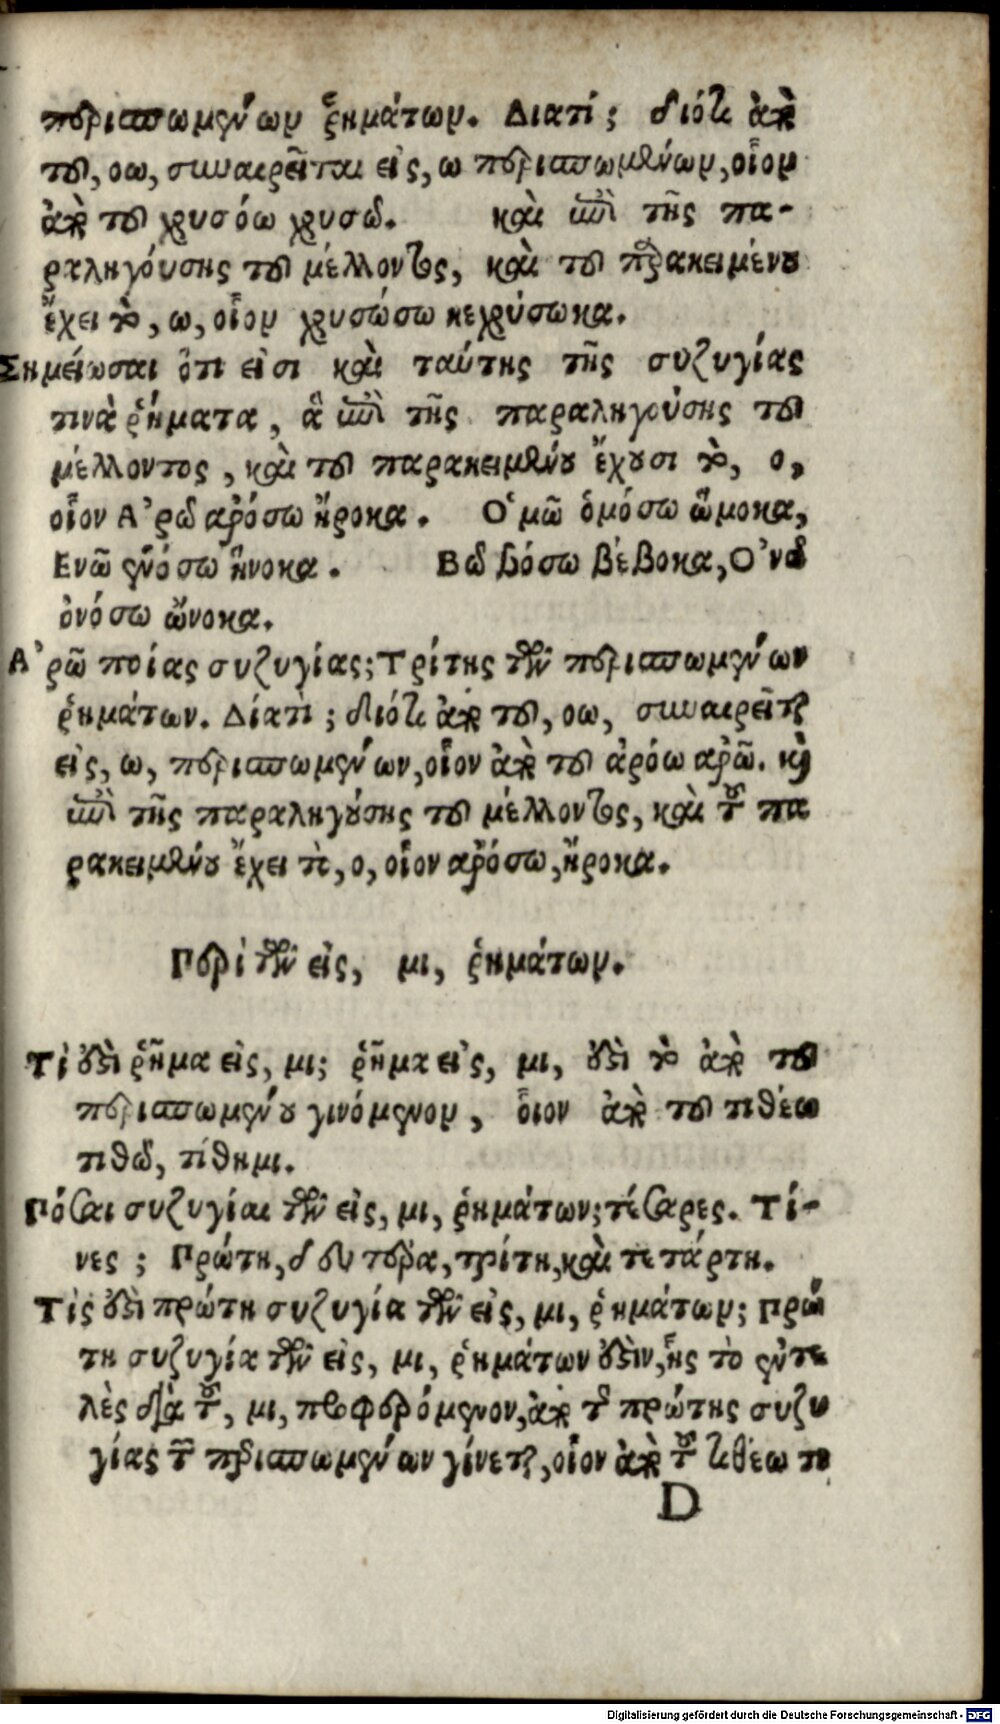 περισπωμένων ῥημάτων. Διατί; διότι ἀπὸ
τοῦ, οω, συναιρεῖται εἰς, ω περισπωμένων, οἷον
ἀπὸ τοῦ χρυσόω χρυσῶ. καὶ ἐπὶ τῆς πα-
ραληγούσης τοῦ μέλλοντος, καὶ τοῦ παρακειμένου
ἔχει τὸ, ω, οἷον χρυσώσω κεχρύσωκα.
Σημείωσαι ὅτι εἰσι καὶ ταύτης τῆς συζυγίας
τινὰ ῥήματα, ἃ ἐπὶ τῆς παραληγούσης τοῦ
μέλλοντος, καὶ τοῦ παρακειμένου ἔχουσι τὸ, ο,
οἷον Α᾿ρῶ ἀρόσω ἤροκα. Ο᾿μῶ ὁμόσω ὤμοκα,
Ενῶ ἐνόσω ἤνοκα. Βῶ βόσω βέβοκα, Ο᾿νῶ
ὀνόσω ὤνοκα.
Α᾿ρῶ ποίας συζυγίας; Τρίτης τῶν περισπωμένων
ῥημάτων. Δίατι; διότι ἀπὸ τοῦ, οω, συναιρεῖται
εἰς, ω, περισπωμένων, οἷον ἀπὸ τοῦ ἀρόω ἀρῶ. καὶ
ἐπὶ τῆς παραληγούσης τοῦ μέλλοντος, καὶ τοῦ πα
ρακειμένου ἔχει τὸ, ο, οἷον ἀρόσω, ἤροκα.
Περὶ τῶν εἰς, μι, ῥημάτων.
Τί ἐστι ῥῆμα εἰς, μι; ῥῆμα εἰς, μι, ἐστὶ τὸ ἀπὸ τοῦ
περισπωμένου γινόμενον, οἷον ἀπὸ τοῦ τιθέω
τιθῶ, τίθημι.
Πόσαι συζυγίαι τῶν εἰς, μι, ῥημάτων; τέσσαρες. Τί-
νες; Πρώτη, δευτέρα, τρίτη, καὶ τετάρτη.
Τίς ἐστι πρώτη συζυγία τῶν εἰς, μι, ῥημάτων; Πρώ
τη συζυγία τῶν εἰς, μι, ῥημάτων ἐστὶν, ἧς τὸ ἐντε
λὲς διὰ τοῦ, μι, προφερόμενον, ἀπὸ τῆς πρώτης συζυ
γίας τῶν περισπωμένων γίνεται, οἷον ἀπὸ τοῦ τιθέω τι
D
Digitalisierung gefördert durch die Deutsche Forschungsgemeinschaft - DFG